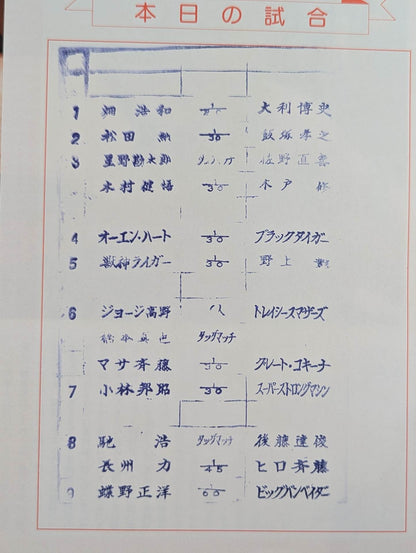 本日の試合
1 畑 浩和 大利博史
2 松田 納 1/30 飯塚孝之
3 星野勘太郎 佐野直喜
木村健悟 1/30 木戸 修
4 オーエン・ハート 1/30 ブラックタイガー
5 獣神ライガー 1/30 野上 彰
6 ジョージ高野 トレイシースマザーズ
橋本真也 タッグマッチ
マサ斉藤 1/30 グレート・コキーナ
7 小林邦昭 1/30 スーパーストロングマシン
8 馳 浩 タッグマッチ 後藤達俊
長州 力 1/45 ヒロ斉藤
9 蝶野正洋 1/60 ビッグバンベイダー